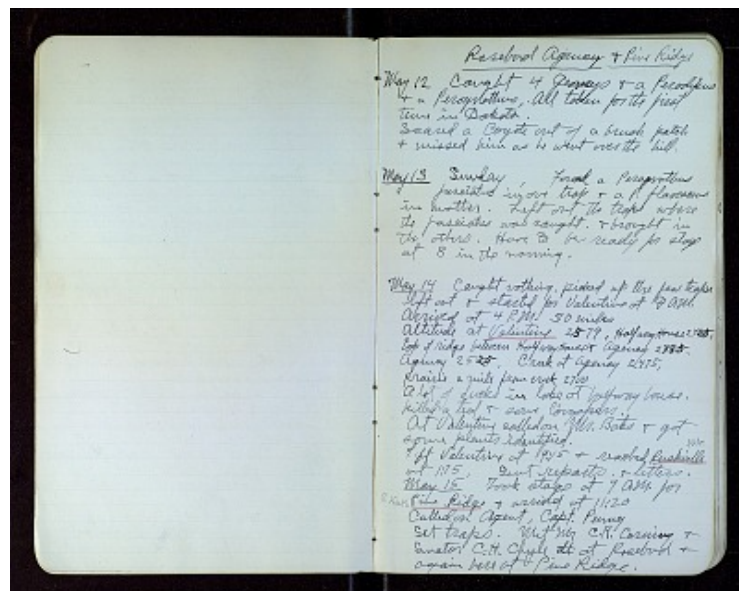 Rosebud Agency & Pine Ridge
May 12 Caught 4 Geomys & a Perodipus
& a Perognathus. All taken for the first
time in Dakota.
Scared a Coyote out of a brush patch
& missed him as he went over the hill.
May 13 Sunday, Found a Perognathus
fasciatus in one trap & a P. flavescens
in another. Left out the traps where
the fasciatus was caught & brought in
the others. Have to be ready for stage
at 8 in the morning.
May 14 Caught nothing, picked up the few traps
left out & started for Valentine at 8 A.M.
Arrived at 4 P.M. 30 miles
Altitude at Valentine 2579, Halfway House
top of ridge between Halfway House & Agency
Agency 2525. Creek at Agency 2475,
Prairie a mile from creek 2700
A lot of ducks in lake at halfway house.
killed a teal & saw
At Valentine called on Mr. Bates & got
some plants identified.
Left Valentine at & reached Rushville
at 1:15. Sent reports & letters.
May 15 Took stage at 7 A.M. for
Pine Ridge & arrived at 11:20
Called on Agent, Capt. Penny
Set traps. Met Mr. C.H. &
Senator C.H. at Rosebud &
again here at Pine Ridge.